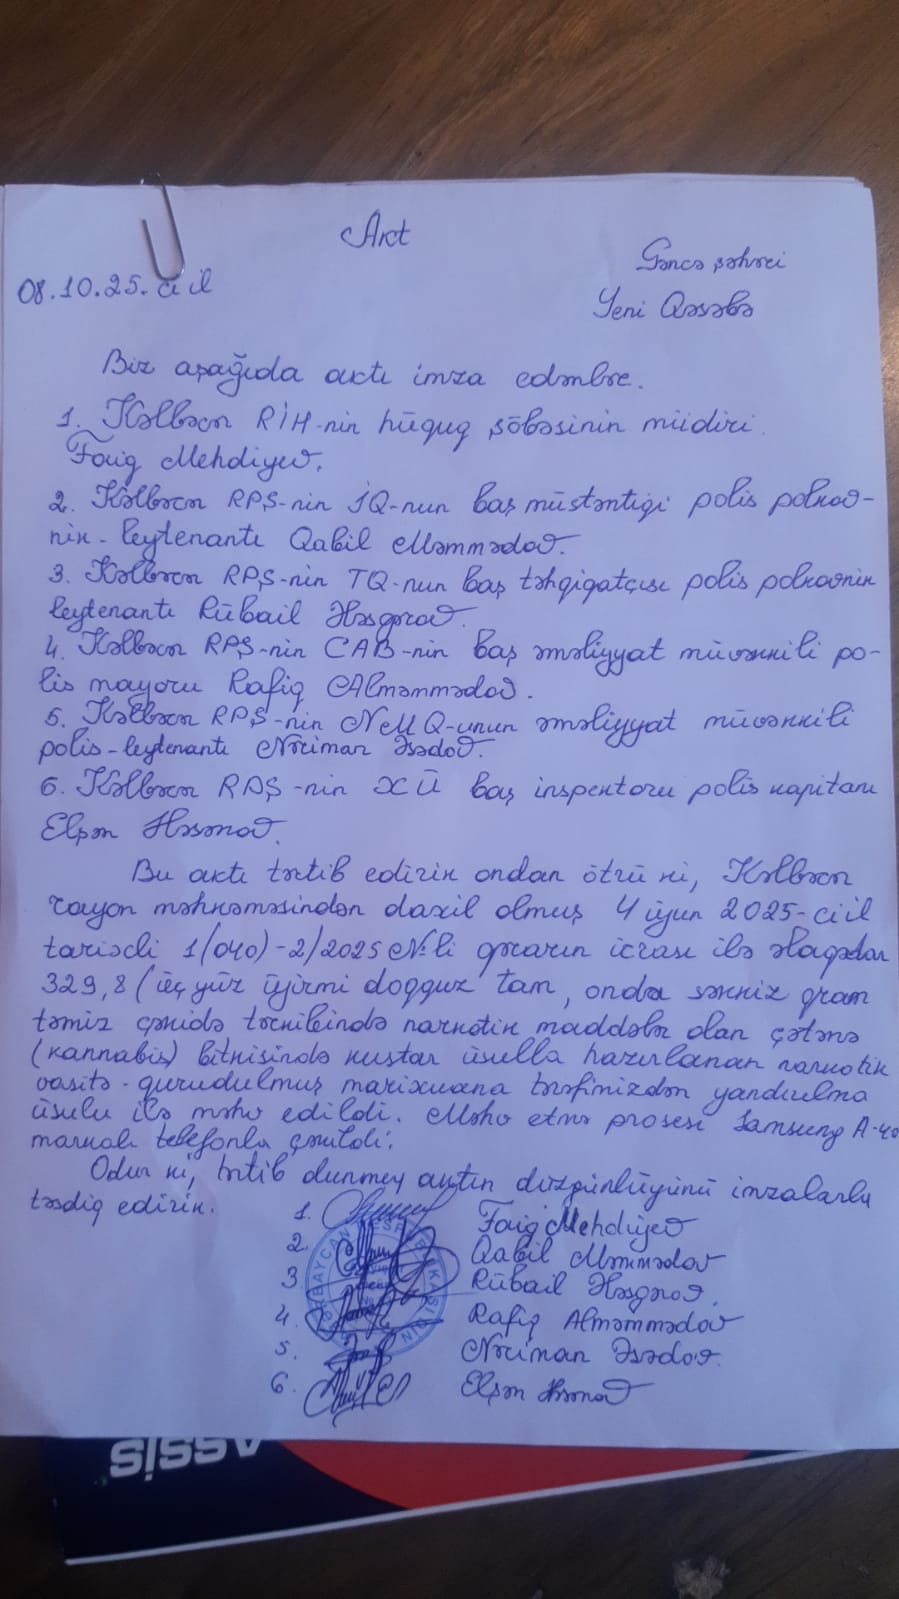 Akt
Gəncə şəhəri
08.10.25.ci il
Yeni Qəsəbə
Biz aşağıda aktı imza edənlər.
1. Kəlbəcər RİH-nin hüquq şöbəsinin müdiri
Faiq Mehdiyev.
2. Kəlbəcər RPŞ-nin İQ-nun baş müstəntiqi polis polkov-
nik-leytenantı Qabil Məmmədov.
3. Kəlbəcər RPŞ-nin TQ-nun baş təhqiqatçısı polis polkovnik
leytenantı Rübail Əsgərov.
4. Kəlbəcər RPŞ-nin CAB-nin baş əməliyyat müvəkkili po-
lis mayoru Rafiq Alməmmədov.
5. Kəlbəcər RPŞ-nin NMQ-unun əməliyyat müvəkkili
polis-leytenantı Nəriman Əsədov.
6. Kəlbəcər RPŞ-nin XÜ baş inspektoru polis kapitanı
Elşən Həsənov.
Bu aktı tərtib edirik ondan ötrü ki, Kəlbəcər
rayon məhkəməsindən daxil olmuş 4 iyun 2025-ci il
tarixli 1(040)-2/2025 №-li qərarın icrası ilə əlaqədar
329,8 (üç yüz iyirmi doqquz tam, onda səkkiz qram
təmiz çəkidə tərkibində narkotik maddələr olan çətənə
(kannabis) bitkisində kustar üsulla hazırlanan narkotik
vasitə-qurudulmuş marixuana tərəfimizdən yandırılma
üsulu ilə məhv edildi. Məhv etmə prosesi Samsung A-40
markalı telefonla çəkildi.
Odur ki, tərtib olunmuş aktın düzgünlüyünü imzalarla
təsdiq edirik.
1. Faiq Mehdiyev
2. Qabil Məmmədov
3 Rübail Əsgərov.
4. Rafiq Alməmmədov
5. Nəriman Əsədov.
6. Elşən Həsənov
ASSIS